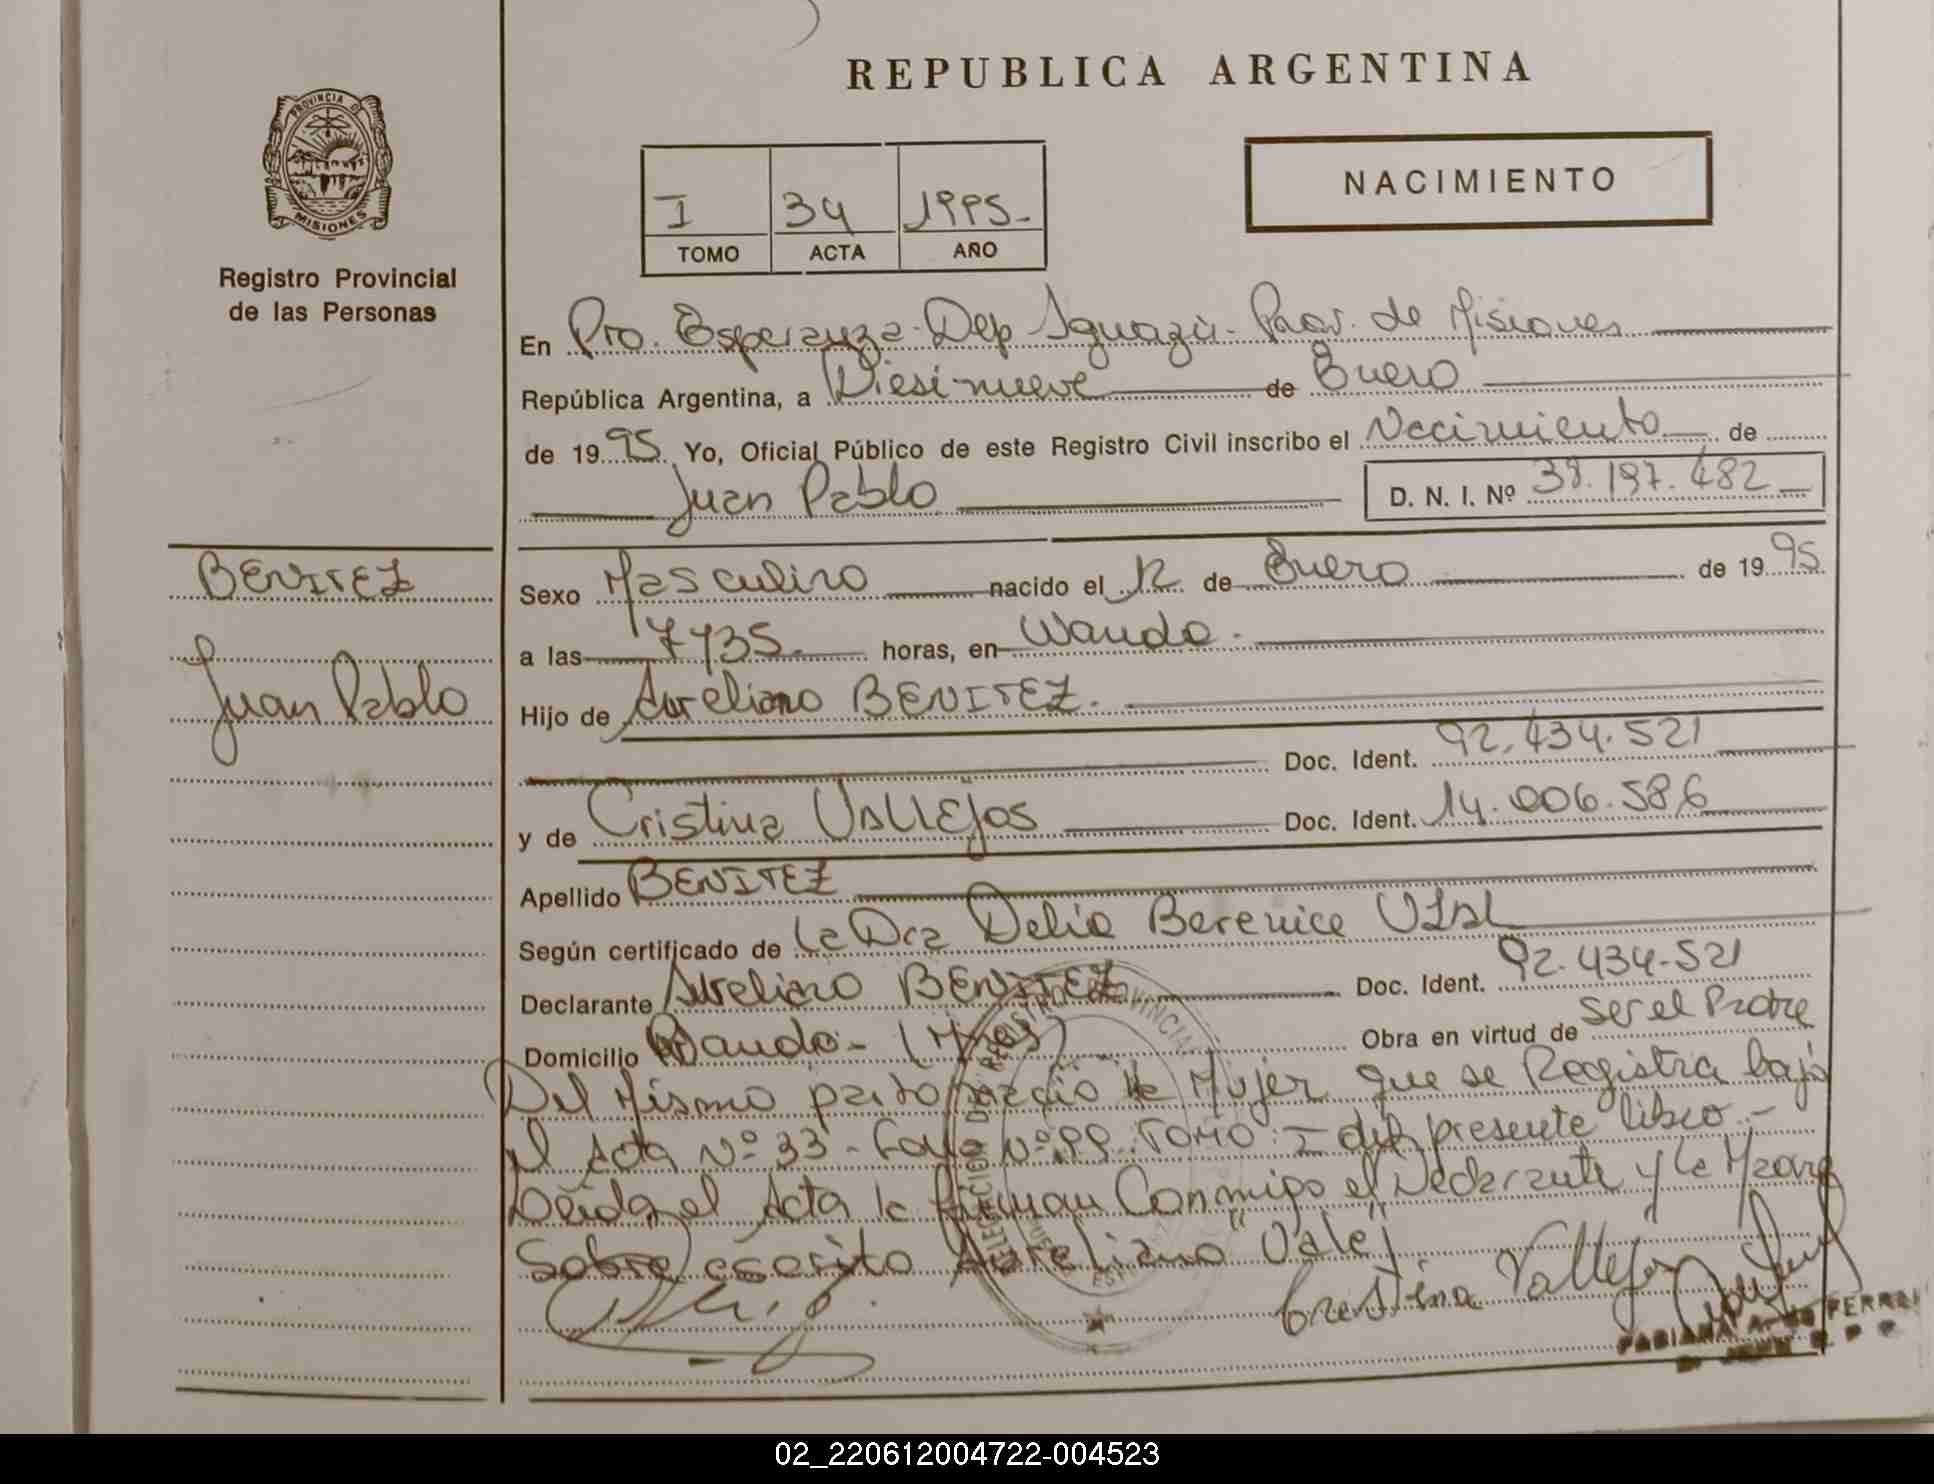 REPUBLICA ARGENTINA
PROVINCIA DE
MISIONES
NACIMIENTO
I 34 1995.-
TOMO ACTA AÑO
Registro Provincial
de las Personas
En Pto. Esperanza - Dep Iguazú - Prov. de Misiones
República Argentina, a Diesi-nueve de Enero
de 1995 Yo, Oficial Público de este Registro Civil inscribo el Nacimiento de
Juan Pablo D. N. I. Nº 38.197.482
BENITEZ
Juan Pablo
Sexo Masculino nacido el 12 de Enero de 1995
a las 7 y 35. horas, en Wanda.
Hijo de Aureliano BENITEZ.
Doc. Ident. 92.434.521
y de Cristina VALLEJOS Doc. Ident. 14.006.586
Apellido BENITEZ
Según certificado de La Dra Delia Berenice
Declarante Aureliano BENITEZ Doc. Ident. 92.434-521
Domicilio Wanda - (Mnes) Obra en virtud de ser el Padre
Del Mismo parto nacio la Mujer que se Registra bajo
el Acta Nº 33 - Nº TOMO - I del presente libro.-
Leída el Acta la firman Conmigo el Declarante y la Madre
Sobre escrito Aureliano "Vale"
Cristina Vallejos
FABIANA
02_220612004722-004523